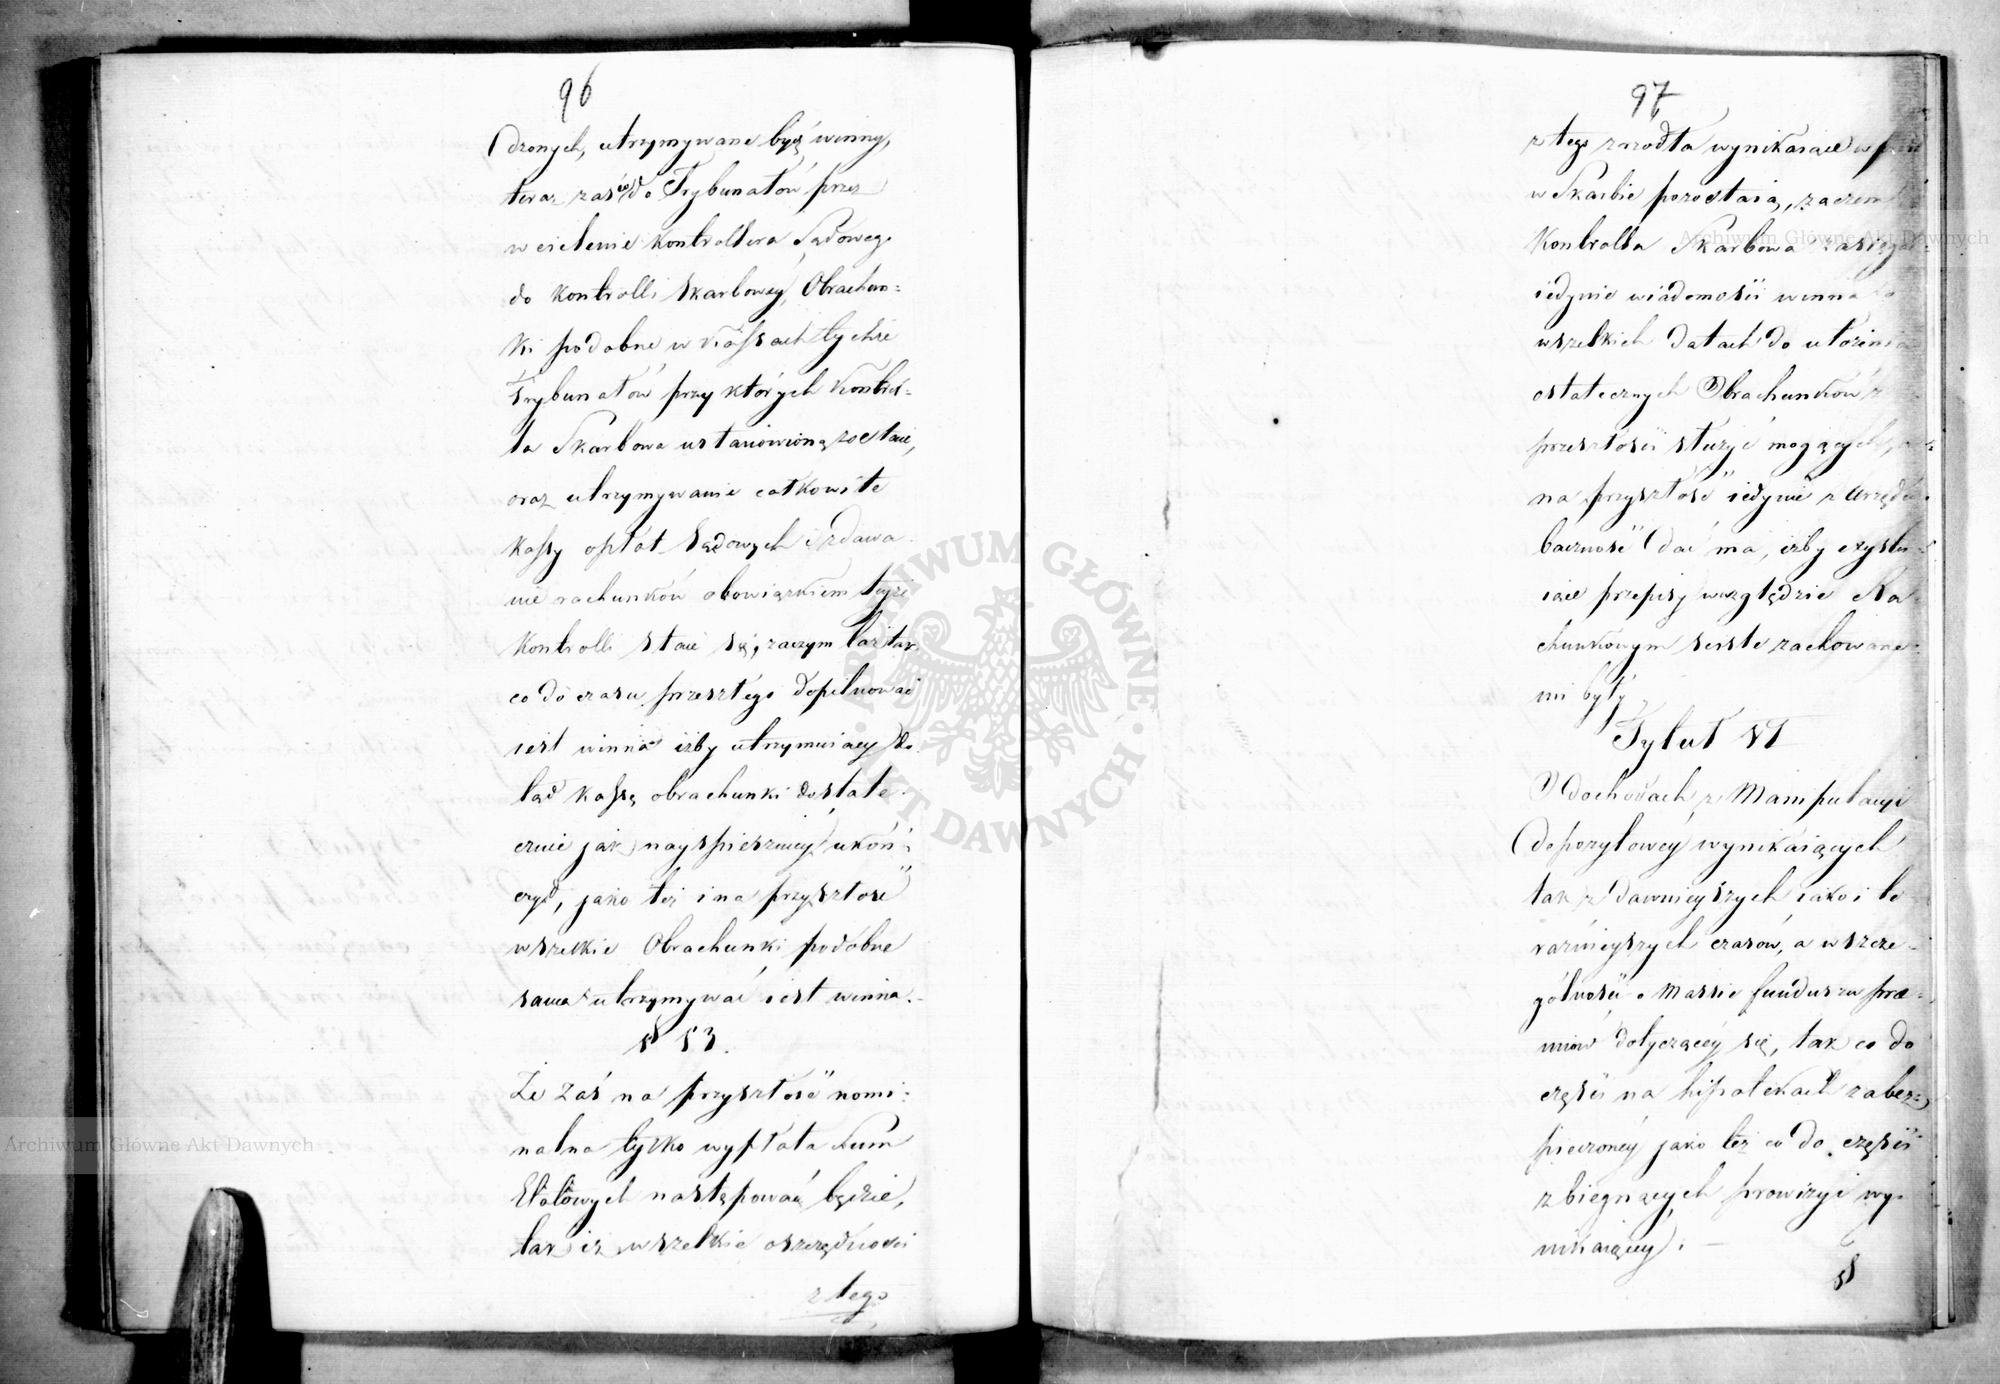 96
dzonych, utrzymywane być winny,
teraz zaś co do Trybunałów przez
wcielenie Kontrollera Sądowego
do Kontrolli Skarbowey, Obrachun=
ki podobne w Kassach tychże
Trybunałów przy których Kontrol=
la Skarbowa ustanowioną zostaie,
oraz utrzymywanie całkowite
Kassy opłat Sądowych i zdawa
nie rachunków obowiązkiem teyże
Kontrolli staie się, zaczym taż tak
co do czasu przeszłego dopilnować
iest winna iżby utrzymuiący do
tąd Kassę obrachunki dostate
cznie jak nayspieszniey ukoń=
czył, jako też i na przyszłość
wszelkie Obrachunki podobne
sama utrzymywać iest winna.
§ 53.
Że zaś na przyszłość nomi=
nalna tylko wypłata Summ
Etatowych następować będzie,
tak iż wszelkie oszczędności
z tego
97
z tego zrzodła wynikaiące
w Skarbie pozostaią, zaczem
Kontrolla Skarbowa zasięgać
iedynie wiadomości winna o
wszelkich datach do ułożenia
ostatecznych Obrachunków z
przeszłości służyć mogących,
na przyszłość iedynie z Urzędu
baczność dać ma, iżby exystu=
iące przepisy względzie Ra=
chunkowym ściśle zachowane=
mi były
Tytuł VI
O dochodach z Manipulacyi
depozytowey wynikaiących
tak z dawnieyszych iako i te
raźnieyszych czasów, a w szcze=
gólności o Massie funduszu pre=
miów dotyczącey się, tak co do
części na hipotekach zabez=
pieczoney jako też co do części
z biegnących prowizyi wy=
nikaiącey. —
§
Archiwum Główne Akt Dawnych
Archiwum Główne Akt Dawnych
ARCHIWUM GŁÓWNE AKT DAWNYCH